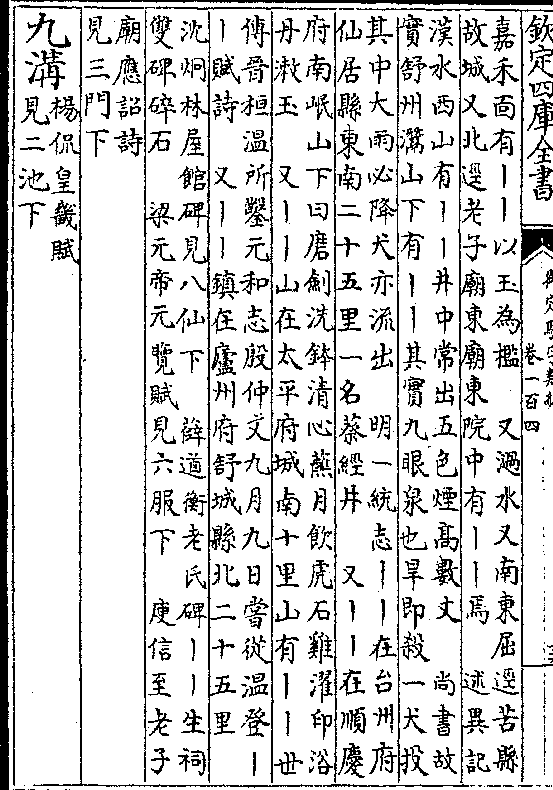 欽定四庫全書
卷一百四
嘉禾面有丨丨以玉為檻　又過水又南東屈逕苦縣
故城又北逕老子廟東廟東院中有丨丨焉　述異記
漢水西山有丨丨井中常出五色煙高數丈　尚書故
實舒州灊山下有丨丨其實九眼泉也旱即殺一犬投
其中大雨必降犬亦流出　明一統志丨丨在台州府
仙居縣東南二十五里一名蔡經井　又丨丨在順慶
府南岷山下曰磨劍洗鉢清心蘸月飲虎石雞濯印浴
丹漱玉　又丨丨山在太平府城南十里山有丨丨世
傳晉桓温所鑿元和志殷仲文九月九日嘗從温登丨
丨賦詩　又丨丨鎮在廬州府舒城縣北二十五里
沈炯林屋館碑見八仙下　薛道衡老氏碑丨丨生祠
雙碑碎石　梁元帝元覽賦見六服下　庾信至老子
廟應詔詩
見三門下
九溝
楊侃皇畿賦
見二池下